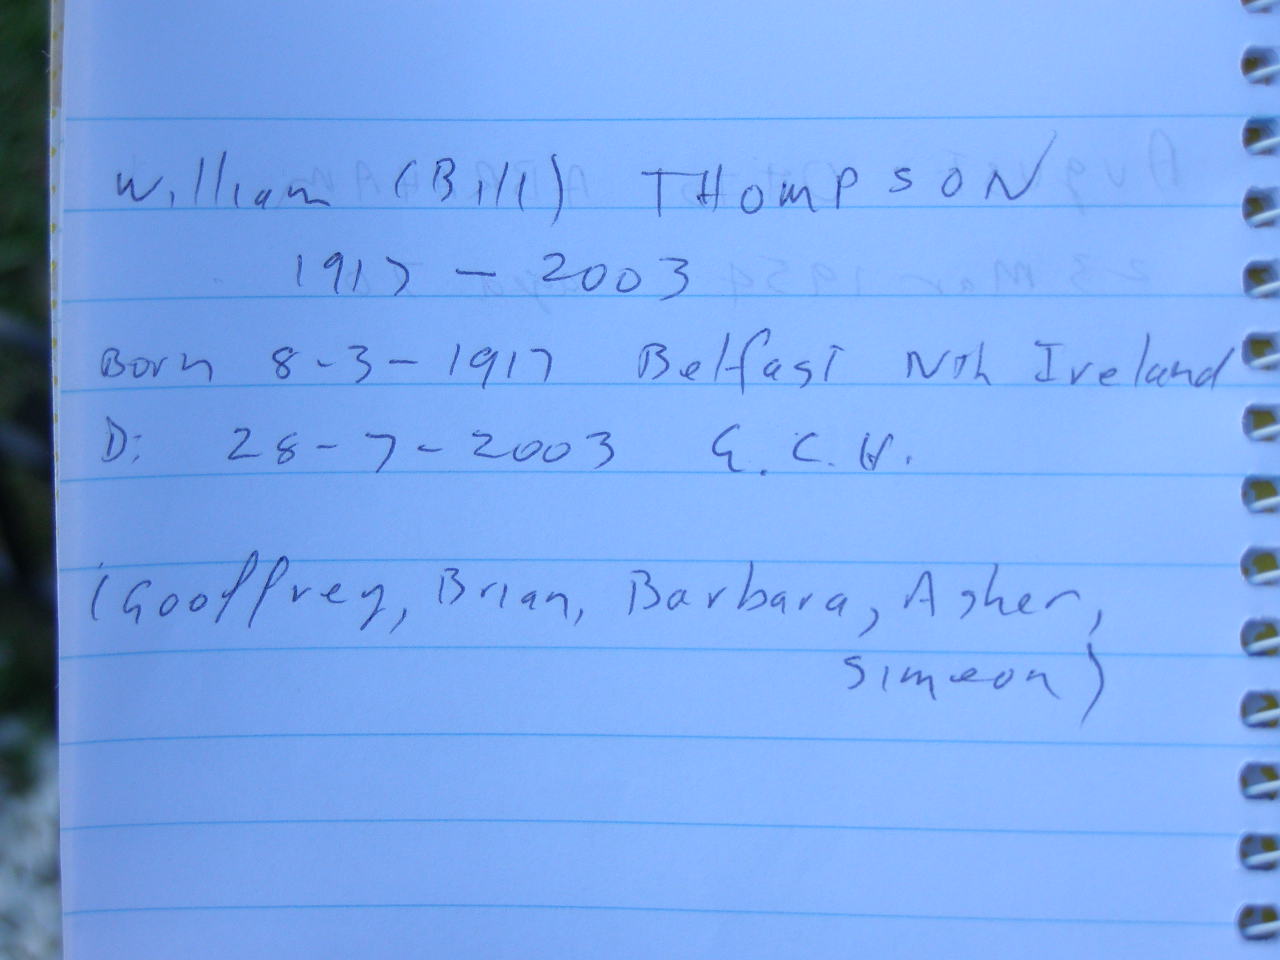 William (Bill) THOMPSON
1917 - 2003
Born 8-3-1917 Belfast Nth Ireland
D: 28-7-2003 G.C.H.
(Geoffrey, Brian, Barbara, Asher,
Simeon)